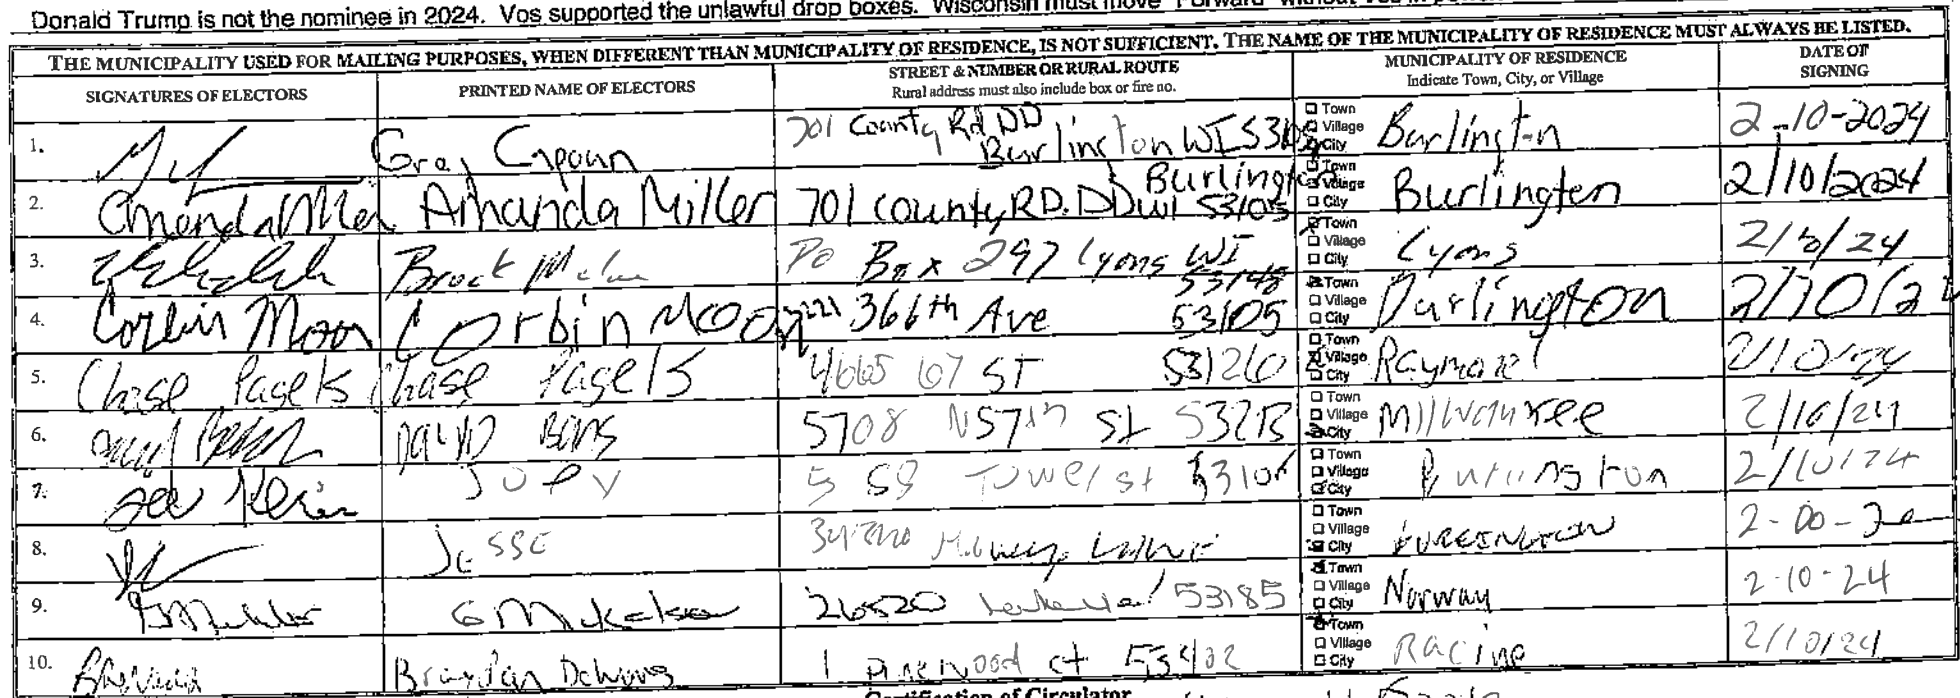 Donald Trump is not the nominee in 2024. Vos supported the unlawful drop boxes. Wisconsin must move "Forward" without Vos in
THE MUNICIPALITY USED FOR MAILING PURPOSES, WHEN DIFFERENT THAN MUNICIPALITY OF RESIDENCE, IS NOT SUFFICIENT. THE NAME OF THE MUNICIPALITY OF RESIDENCE MUST ALWAYS BE LISTED.
SIGNATURES OF ELECTORS PRINTED NAME OF ELECTORS STREET & NUMBER OR RURAL ROUTE MUNICIPALITY OF RESIDENCE DATE OF
Rural address must also include box or fire no. Indicate Town, City, or Village SIGNING
1. Greg 701 County Rd DD Burlington WI 53105 Town Village City Burlington 2-10-2024
2. Amanda Miller Amanda Miller 701 County RD. DD Burlington WI 53105 Town Village City Burlington 2/10/2024
3. Brock PO Box 297 Lyons WI 53148 Town Village City Lyons 2/ /24
4. Corbin Moon Corbin Moon 366th Ave 53105 Town Village City Burlington 2/10/2
5. Chase Pagels Chase Pagels 4665 67 ST 53126 Town Village City Raymond 2/10/24
6. David 5708 N 57th St Town Village City Milwaukee 2/10/24
7. Joey Tower st 5310 Town Village City Burlington 2/10/24
8. Jesse Town Village City Burlington
9. G 26520 53185 Town Village City Norway 2-10-24
10. Brayden 1 Pinewood ct 53402 Town Village City Racine 2/10/24
Certification of Circulator